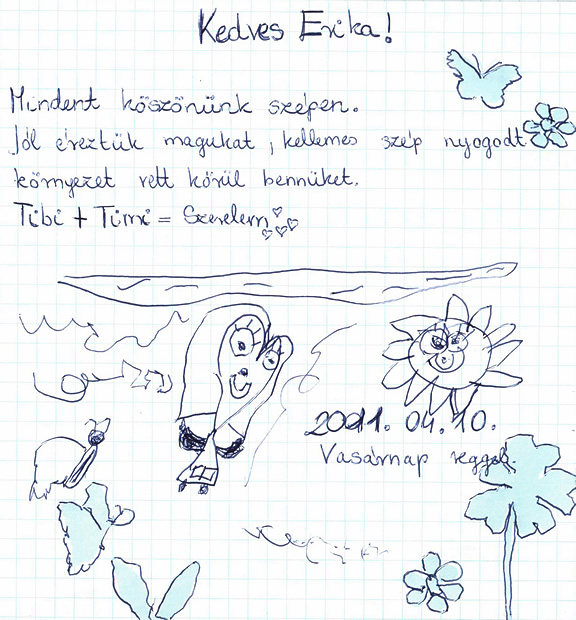 Kedves Erika!
Mindent köszönünk szépen.
Jól éreztük magukat, kellemes szép nyogodt
környezet vett körül bennüket.
Tibi + Timi = Szerelem
2011. 04. 10.
Vasárnap reggel.